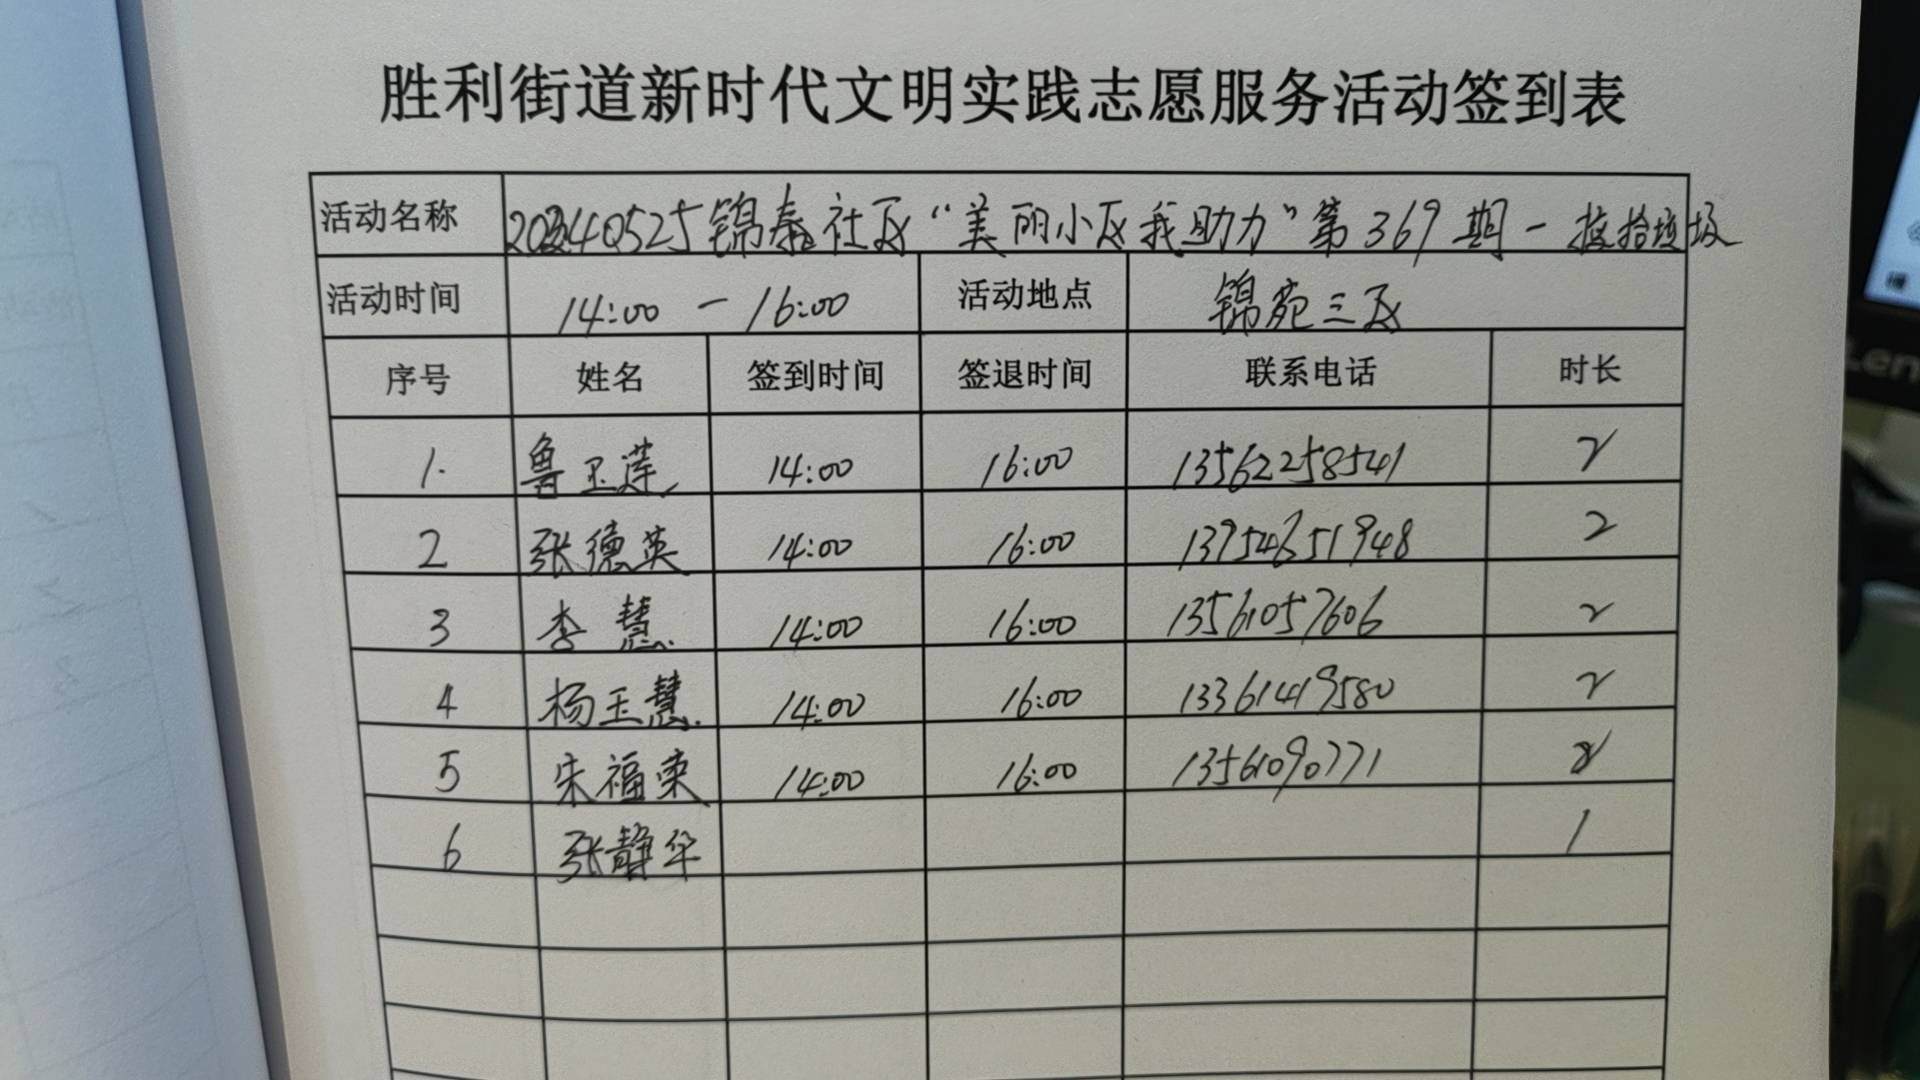 胜利街道新时代文明实践志愿服务活动签到表
活动名称 20240525锦泰社区“美丽小区我助力”第369期-捡拾垃圾
活动时间 14:00 - 16:00 活动地点 锦苑三区
序号 姓名 签到时间 签退时间 联系电话 时长
1. 鲁玉莲 14:00 16:00 13562258541 2
2 张德英 14:00 16:00 13954651948 2
3 李慧 14:00 16:00 13561057606 2
4 杨玉慧 14:00 16:00 13361419580 2
5 朱福荣 14:00 16:00 13561090771 2
6 张静华 1
Len